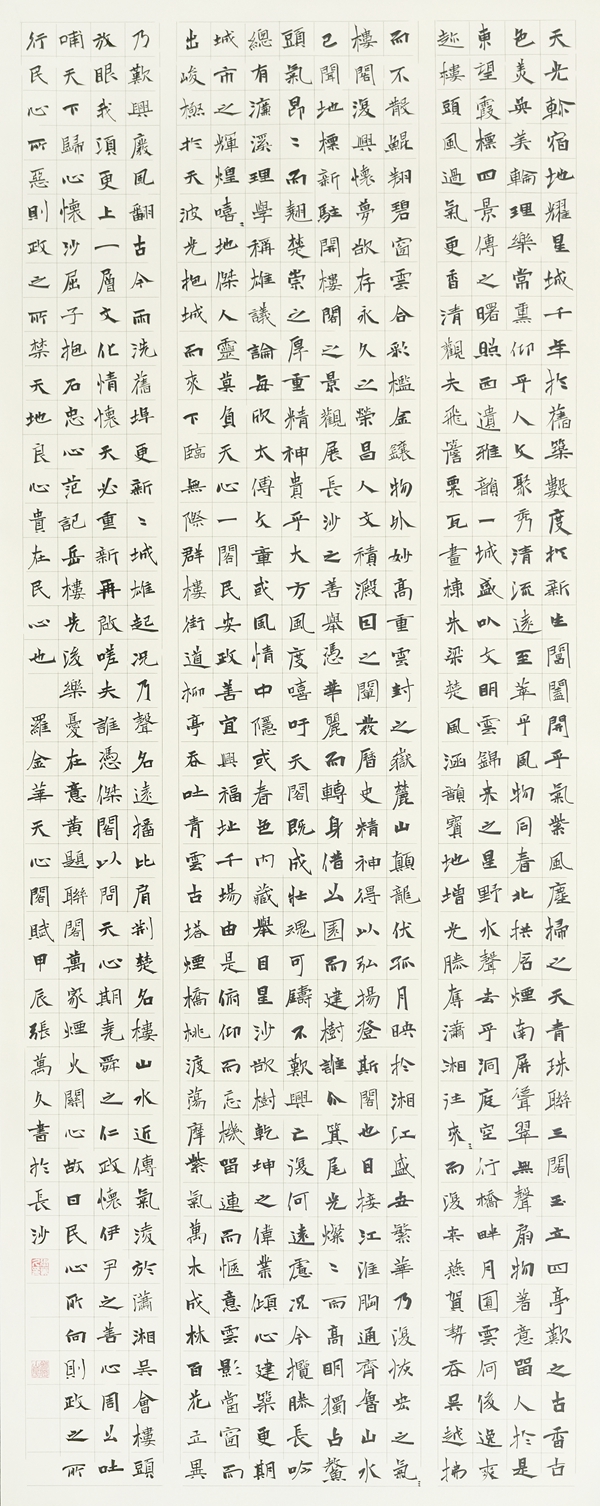 天光軫宿地耀星城千年於舊築數度於新生閶闔開乎氣紫風塵掃之天青珠聯三閣玉立四亭歎之古香古
色美奐美輪理樂常熏仰乎人文聚秀清流遠至華乎風物同春北拱名煙南屏聳翠無聲扇物著意留人於是
東望霞標四景傳之曙照西遺雅韻一城盛以文明雲錦來之星野水聲去乎洞庭空行橋畔月圓雲何後逸爽
趂樓頭風過氣更香清觀夫飛簷栗瓦畫棟朱梁楚風涵韻寶地增光勝奪瀟湘往來〻而復來燕賀勢吞吳越拂
而不散鯤翔碧窗雲合彩檻金鑲物外妙高重雲封之嶽麓山顛龍伏孤月映於湘江盛世繁華乃復恢宏之氣〻
樓閣復興懷夢欲存永久之榮昌人文積澱因之闡發曆史精神得以弘揚登斯閣也目接江淮胸通齊魯山水
已聞地標新駐開樓閣之景觀展長沙之善舉憑華麗而轉身借公園而建樹誰分箕尾光燦〻而高明獨占鰲
頭氣昂〻而翔楚崇之厚重精神貴乎大方風度嘻吁天閣既成壯魂可疇不歎興亡復何遠慮況今攬勝長吟
總有濂溪理學稱雄議論每欣太傅文章或風情中隱或春色內藏舉目星沙欲樹乾坤之偉業傾心建築更期
城市之輝煌嘻〻地傑人靈莫負天心一閣民安政善宜興福址千場由是俯仰而忘機留連而愜意雲影當窗而
出峻極於天波光抱城而來下臨無際群樓街道柳亭吞吐青雲古塔煙橋桃渡蕩摩紫氣萬木成林百花立異
乃歎興廢風翻古今而洗舊埠更新〻城雄起況乃聲名遠播比肩荊楚名樓山水近傳氣淩於瀟湘吳會樓頭
放眼我須更上一層文化情懷天必重新再啟嗟夫誰憑傑閣以問天心期堯舜之仁政懷伊尹之善心周公吐
哺天下歸心懷沙屈子抱石忠心范記岳樓先後樂憂在意黃題聯閣萬家煙火關心故曰民心所向則政之所
行民心所惡則政之所禁天地良心貴在民心也 羅金華天心閣賦甲辰張萬久書於長沙